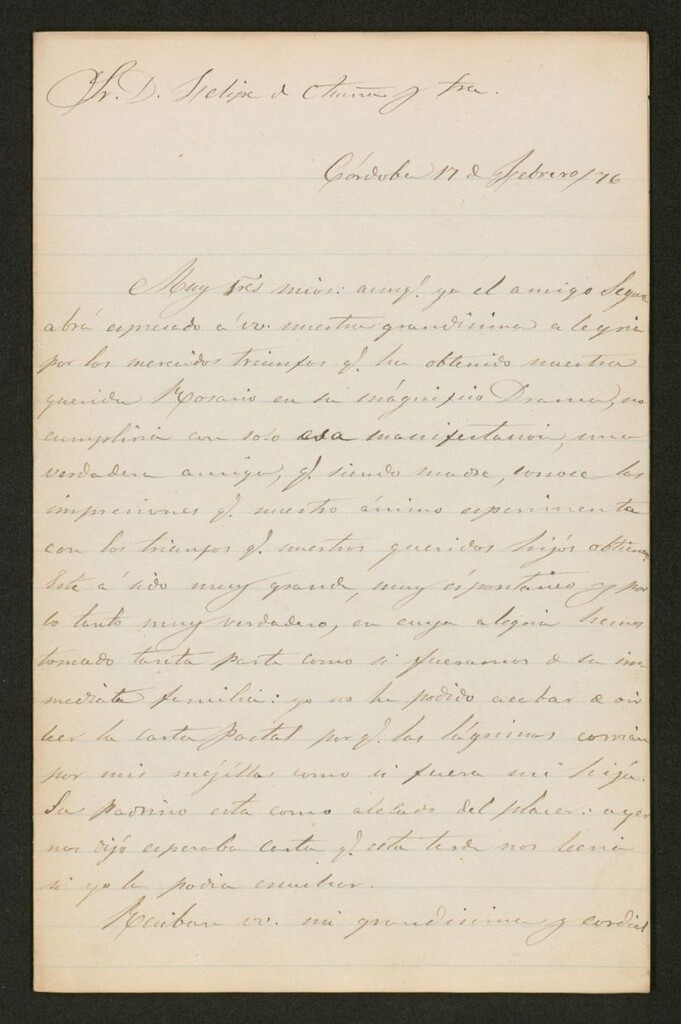 Sr. D. Felipe de Acuña y Sra.
Córdoba 17 de Febrero/76
Muy Sres mios: aunq.e ya el amigo Segura
abrá espresado á vv. nuestra grandisima alegria
por los merecidos triunfos q.e ha obtenido nuestra
querida Rosario en su mágnifico Drama, no
cumpliria con solo esa manifestacion, una
verdadera amiga, q.e siendo madre, conoce las
impresiones q.e nuestro ánimo esperimenta
con los triunfos q.e nuestros queridos hijos obtienen.
Este á sido muy grande, muy espontáneo y por
lo tanto muy verdadero, en cuya alegria hemos
tomado tanta parte como si fueramos de su in
mediata familia: yo no he podido acabar de oir
leer la carta Postal porq.e las lágrimas corrian
por mis mejillas como si fuera mi hija.
Su padrino esta como alelado del placer: ayer
nos dijo esperaba carta q.e esta tarde nos leeria
si yo la podia escuchar.
Reciban vv. mi grandisima y cordial